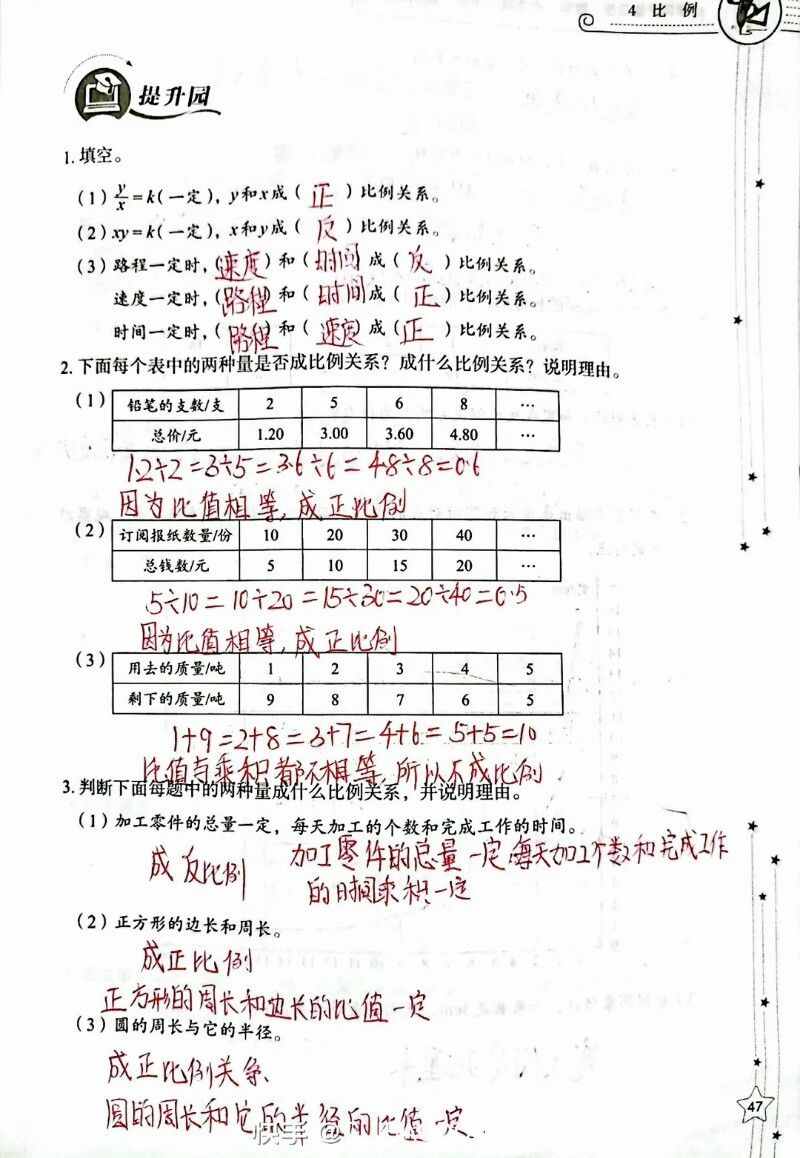 4 比 例
提升园
1. 填空。
(1) y/x=k(一定)，y和x成( 正 )比例关系。
(2) xy=k(一定)，x和y成( 反 )比例关系。
(3) 路程一定时，(速度)和(时间)成(反)比例关系。
速度一定时，(路程)和(时间)成(正)比例关系。
时间一定时，(路程)和(速度)成(正)比例关系。
2. 下面每个表中的两种量是否成比例关系？成什么比例关系？说明理由。
(1) 铅笔的支数/支 2 5 6 8 …
总价/元 1.20 3.00 3.60 4.80 …
1.2÷2=3÷5=3.6÷6=4.8÷8=0.6
因为比值相等,成正比例
(2) 订阅报纸数量/份 10 20 30 40 …
总钱数/元 5 10 15 20 …
5÷10=10÷20=15÷30=20÷40=0.5
因为比值相等,成正比例
(3) 用去的质量/吨 1 2 3 4 5
剩下的质量/吨 9 8 7 6 5
1+9=2+8=3+7=4+6=5+5=10
比值与乘积都不相等,所以不成比例
3. 判断下面每题中的两种量成什么比例关系，并说明理由。
(1) 加工零件的总量一定，每天加工的个数和完成工作的时间。
成反比例 加工零件的总量一定,每天加工个数和完成工作
的时间乘积一定
(2) 正方形的边长和周长。
成正比例
正方形的周长和边长的比值一定
(3) 圆的周长与它的半径。
成正比例关系
圆的周长和它的半径的比值一定.
47
快手 @